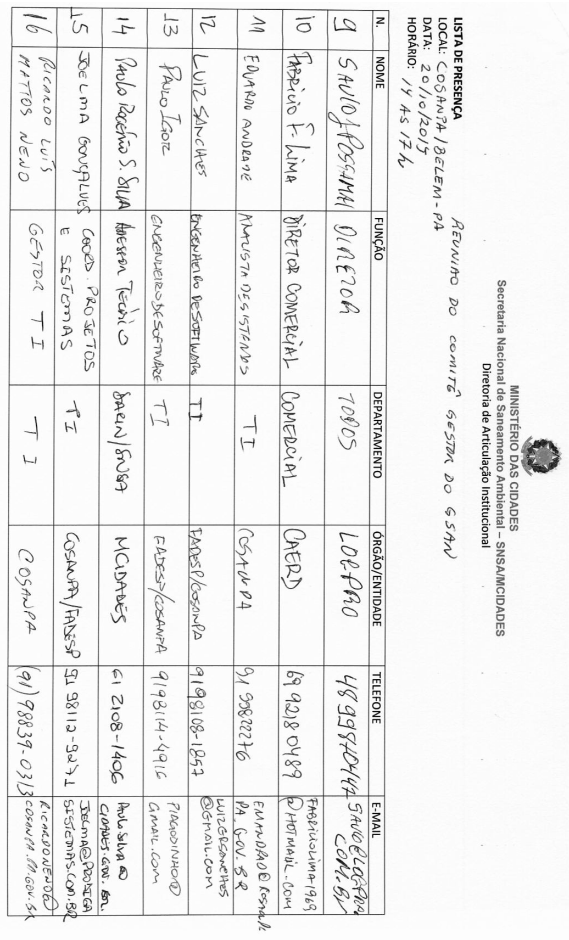 MINISTÉRIO DAS CIDADES
Secretaria Nacional de Saneamento Ambiental – SNSA/MCIDADES
Diretoria de Articulação Institucional
REUNIÃO DO COMITÊ GESTOR DO GSAN
LISTA DE PRESENÇA
LOCAL: COSANPA/BELEM-PA
DATA: 20/10/2015
HORÁRIO: 14 AS 17 h
N. NOME FUNÇÃO DEPARTAMENTO ÓRGÃO/ENTIDADE TELEFONE E-MAIL
9 SAVIO DIRETOR TODOS
10 FABRICIO F. LIMA DIRETOR COMERCIAL COMERCIAL CAERD 69 92180489 FABRICIOLIMA-1969
@HOTMAIL.COM
11 EDUARDO ANDRADE ANALISTA DE SISTEMAS TI COSANPA
PA.GOV.BR
12 LUIZ SANCHES ENGENHEIRO DE SOFTWARE TI FADESP/COSANPA 91 98108-1857 LUIZGRSANCHES
@GMAIL.COM
13 PAULO IGOR ENGENHEIRO DE SOFTWARE TI FADESP/COSANPA 91 98114-4916 PIAGODINHO@
GMAIL.COM
14 PAULO ROGÉRIO S. SILVA ASSESSOR TÉCNICO DARIN/SNSA MCIDADES 61 2108-1406 PAULO.SILVA@
CIDADES.GOV.BR.
15 JOELMA GONÇALVES COORD. PROJETOS
E SISTEMAS TI COSANPA/FADESP 91 98112-9271 JOELMA@PRODIGA
SISTEMAS.COM.BR
16 RICARDO LUIS
MATTOS NENO GESTOR TI TI COSANPA (91) 98839-0313 RICARDONENO@
COSANPA.PA.GOV.BR